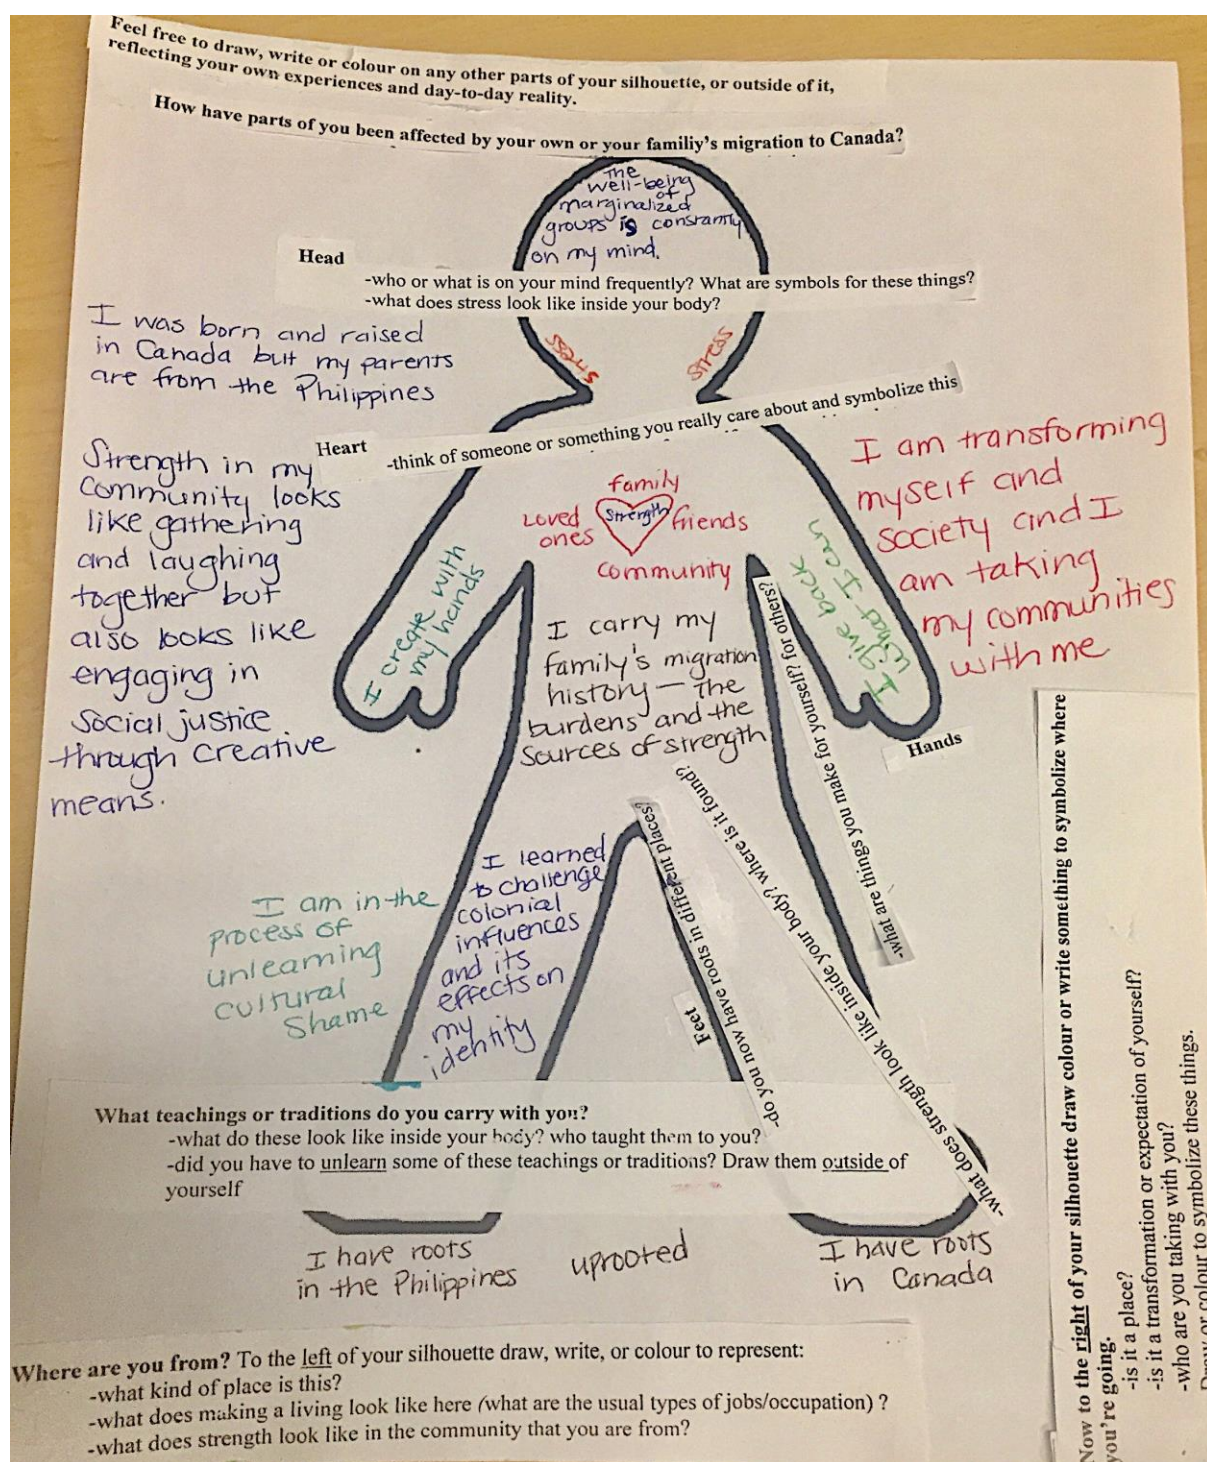 Feel free to draw, write or colour on any other parts of your silhouette, or outside of it,
reflecting your own experiences and day-to-day reality.
How have parts of you been affected by your own or your familiy's migration to Canada?
The
well-being
of
marginalized
groups is constantly
on my mind.
Head
-who or what is on your mind frequently? What are symbols for these things?
-what does stress look like inside your body?
stress
stress
I was born and raised
in Canada but my parents
are from the Philippines
Heart
-think of someone or something you really care about and symbolize this
Strength in my
community looks
like gathering
and laughing
together but
also looks like
engaging in
social justice
through creative
means.
family
Loved
ones
Strength
friends
community
I create with
my hands
I give back
what I can
I am transforming
myself and
society and I
am taking
my communities
with me
I carry my
family's migration
history — the
burdens and the
sources of strength
Hands
-what are things you make for yourself? for others?
-what does strength look like inside your body? where is it found?
Feet
-do you now have roots in different places?
I learned
to challenge
colonial
influences
and its
effects on
my
identity
I am in the
process of
unlearning
cultural
shame
What teachings or traditions do you carry with you?
-what do these look like inside your body? who taught them to you?
-did you have to unlearn some of these teachings or traditions? Draw them outside of
yourself
I have roots
in the Philippines
uprooted
I have roots
in Canada
Where are you from? To the left of your silhouette draw, write, or colour to represent:
-what kind of place is this?
-what does making a living look like here (what are the usual types of jobs/occupation) ?
-what does strength look like in the community that you are from?
Now to the right of your silhouette draw colour or write something to symbolize where
you're going.
-is it a place?
-is it a transformation or expectation of yourself?
-who are you taking with you?
Draw or colour to symbolize these things.